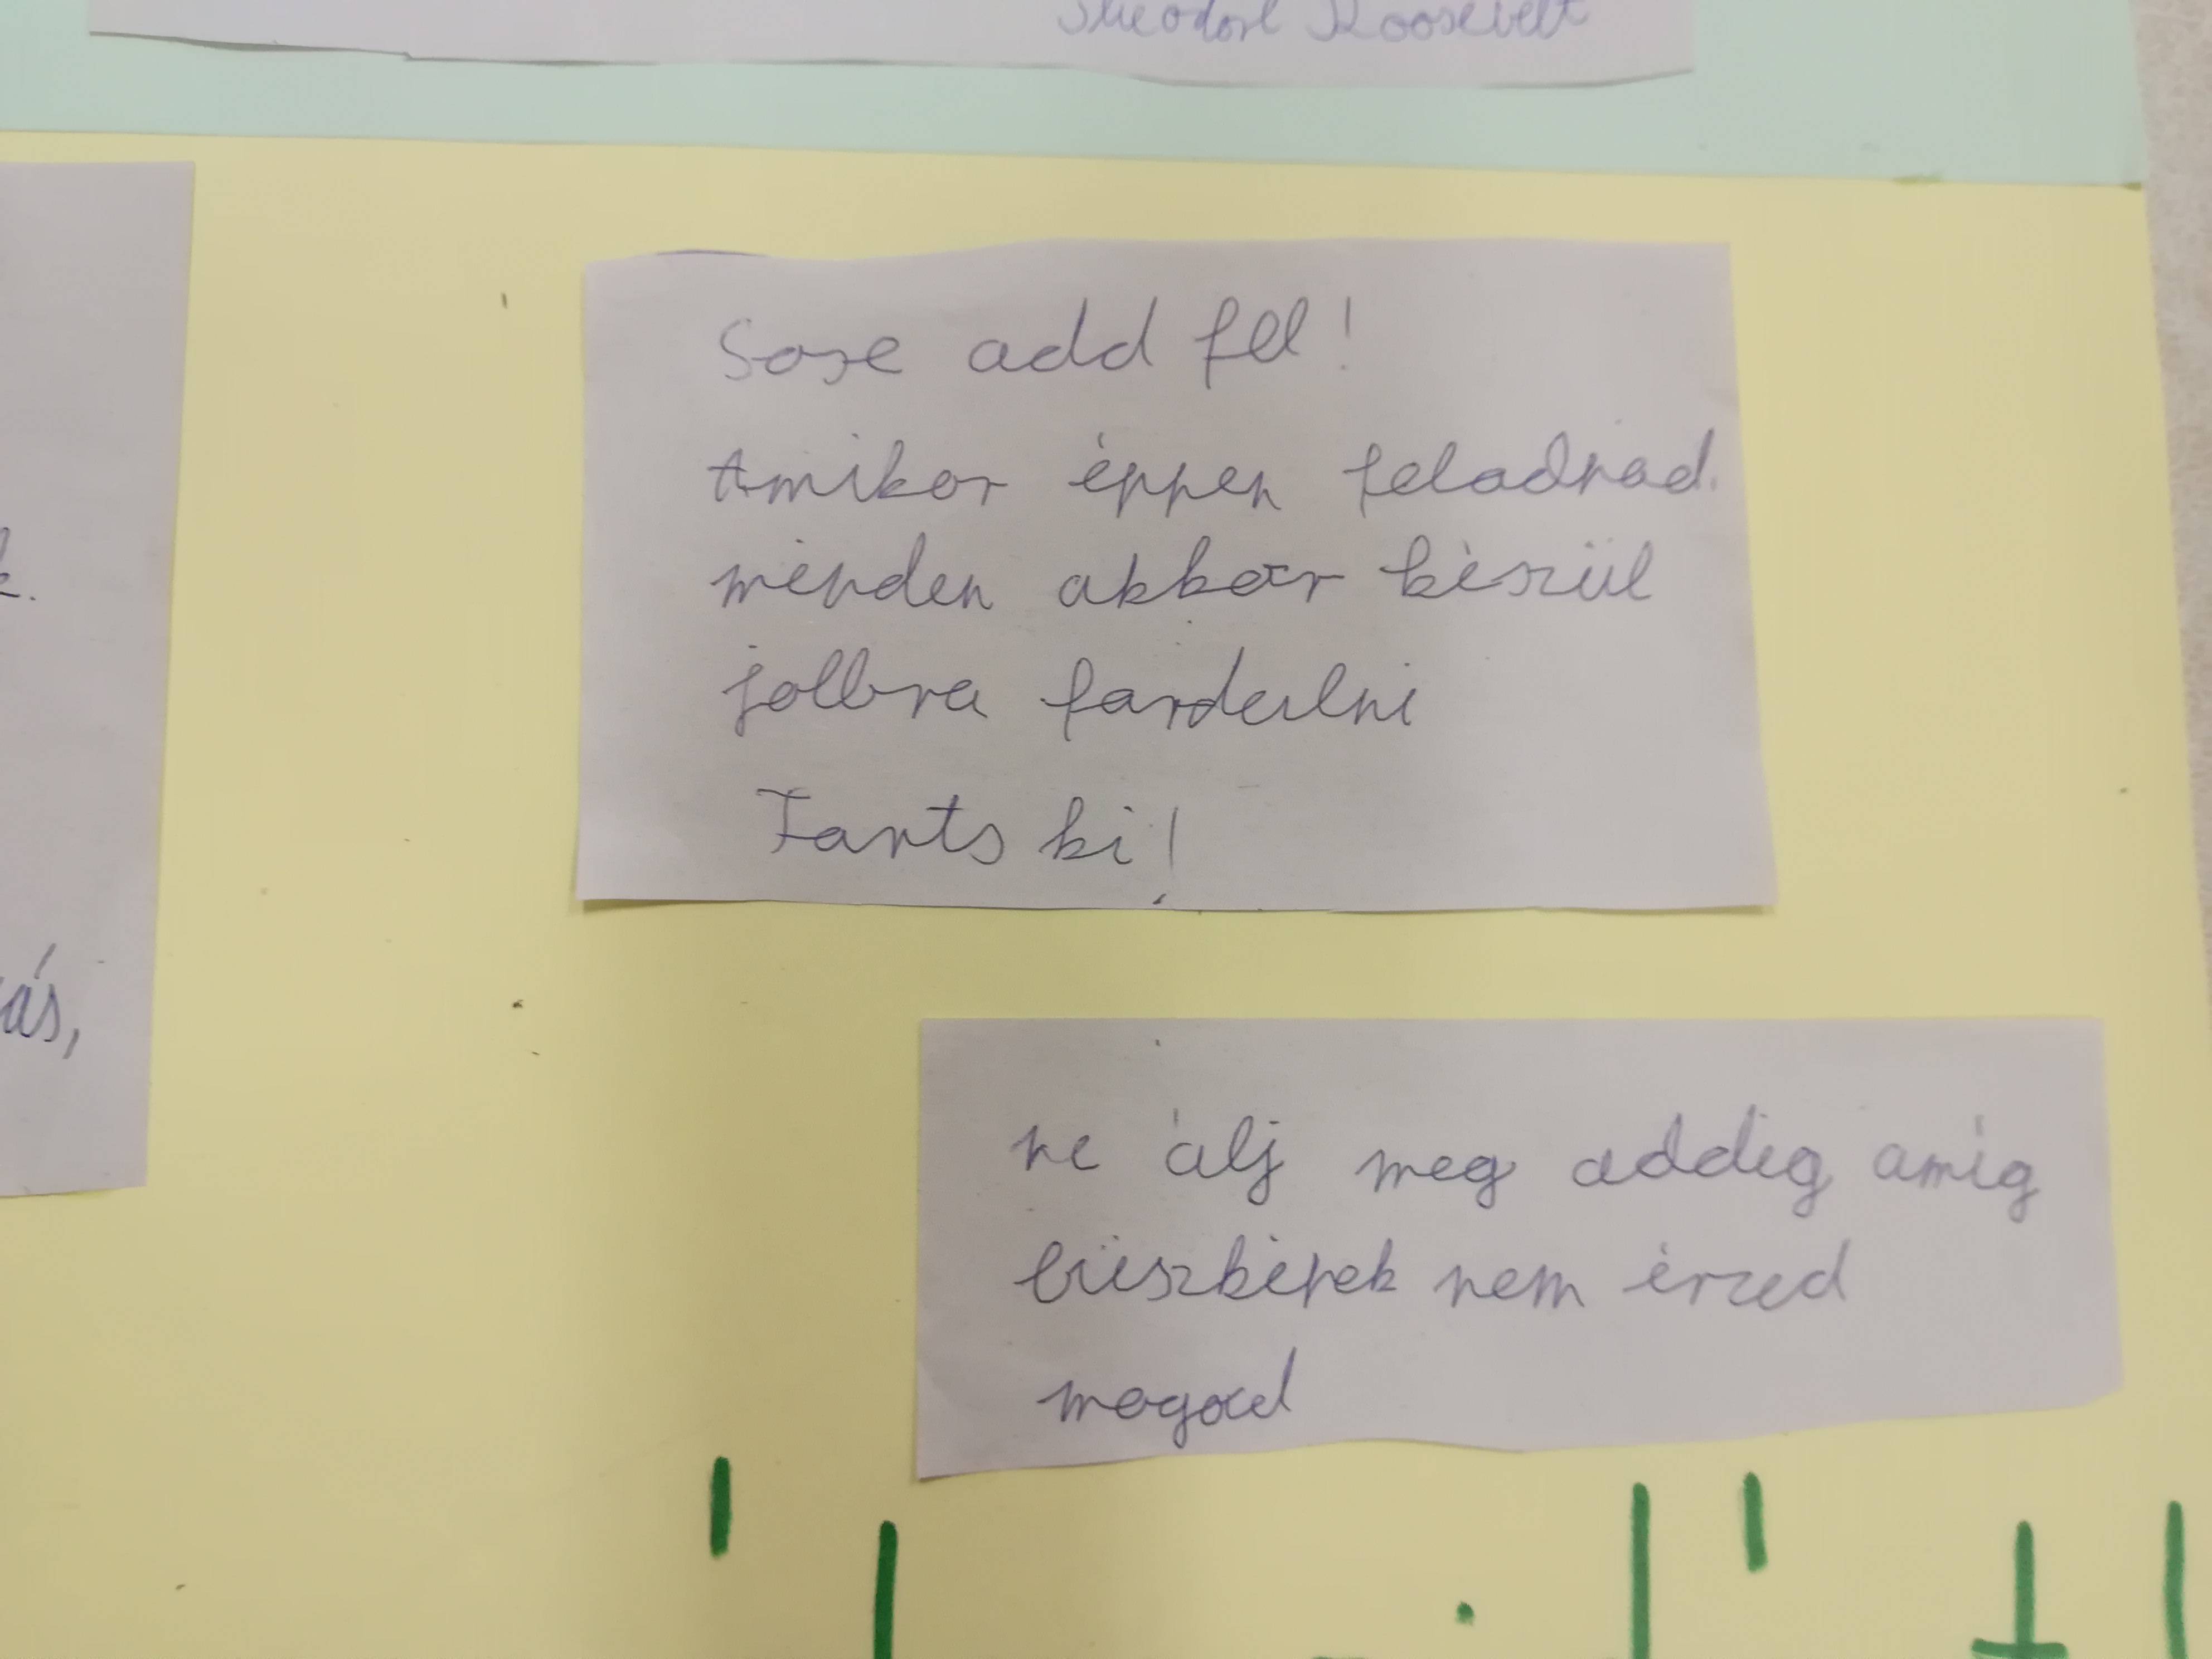 Theodore Roosevelt
Sose add fel!
Amikor éppen feladnad.
minden akkor készül
jollbra fardulni
Tarts ki!
ás,
ne álj meg addig amig
büszkének nem érzed
magad